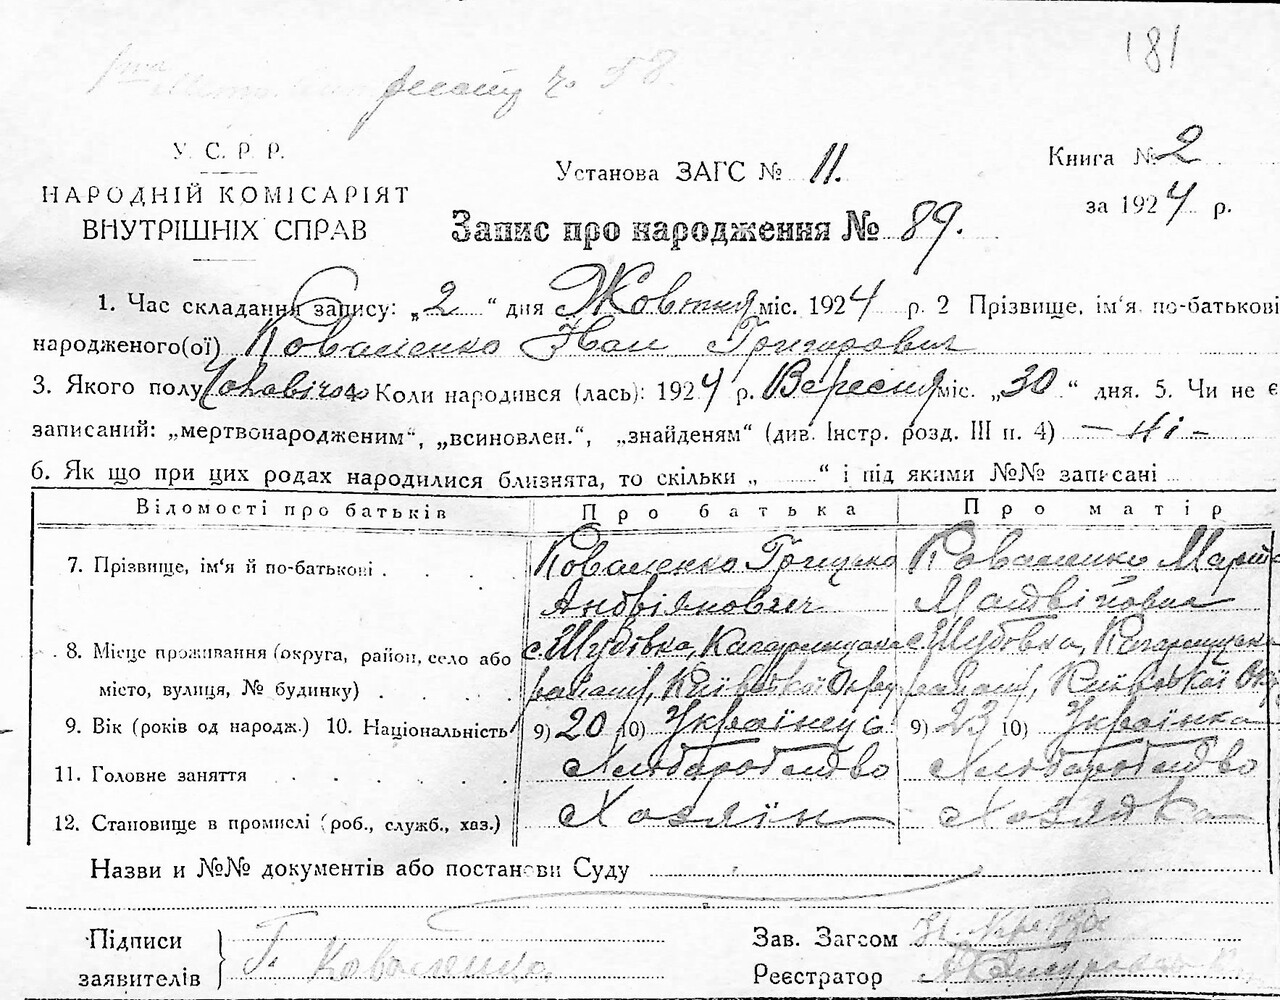 181
У. С. Р. Р.
НАРОДНІЙ КОМІСАРІЯТ
ВНУТРІШНІХ СПРАВ
Установа ЗАГС № 11.
Книга № 2
за 1924 р.
Запис про народження № 89.
1. Час складання запису: „2“ дня Жовтня міс. 1924 р. 2 Прізвище, ім'я по-батькові
народженого(ої) Коваленко Іван Григорович
3. Якого полу Чоловічого 4. Коли народився (лась): 1924 р. Вересня міс. „30“ дня. 5. Чи не є
записаний: „мертвонародженим“, „всиновлен.“, „знайденям“ (див. Інстр. розд. III п. 4) – ні –
6. Як що при цих родах народилися близнята, то скільки „ “ і під якими №№ записані
Відомості про батьків Про батька Про матір
7. Прізвище, ім'я й по-батькові . . . . Коваленко Грицько Коваленко Марія
Андріянович Матвіївна
8. Місце проживання (округа, район, село або с. Шубовка, Кагарлицька с. Шубовка, Кагарлицька
місто, вулиця, № будинку) . . . . . району, Київської Округ району, Київської Окр
9. Вік (років од народж.) 10. Національність 9) 20 10) Українець 9) 23 10) Українка
11. Головне заняття . . . . . Хліборобство Хліборобство
12. Становище в промислі (роб., служб., хаз.) Хозяїн Хозяйка
Назви и №№ документів або постанови Суду
Підписи
заявителів } Г. Коваленко
Зав. Загсом
Реєстратор